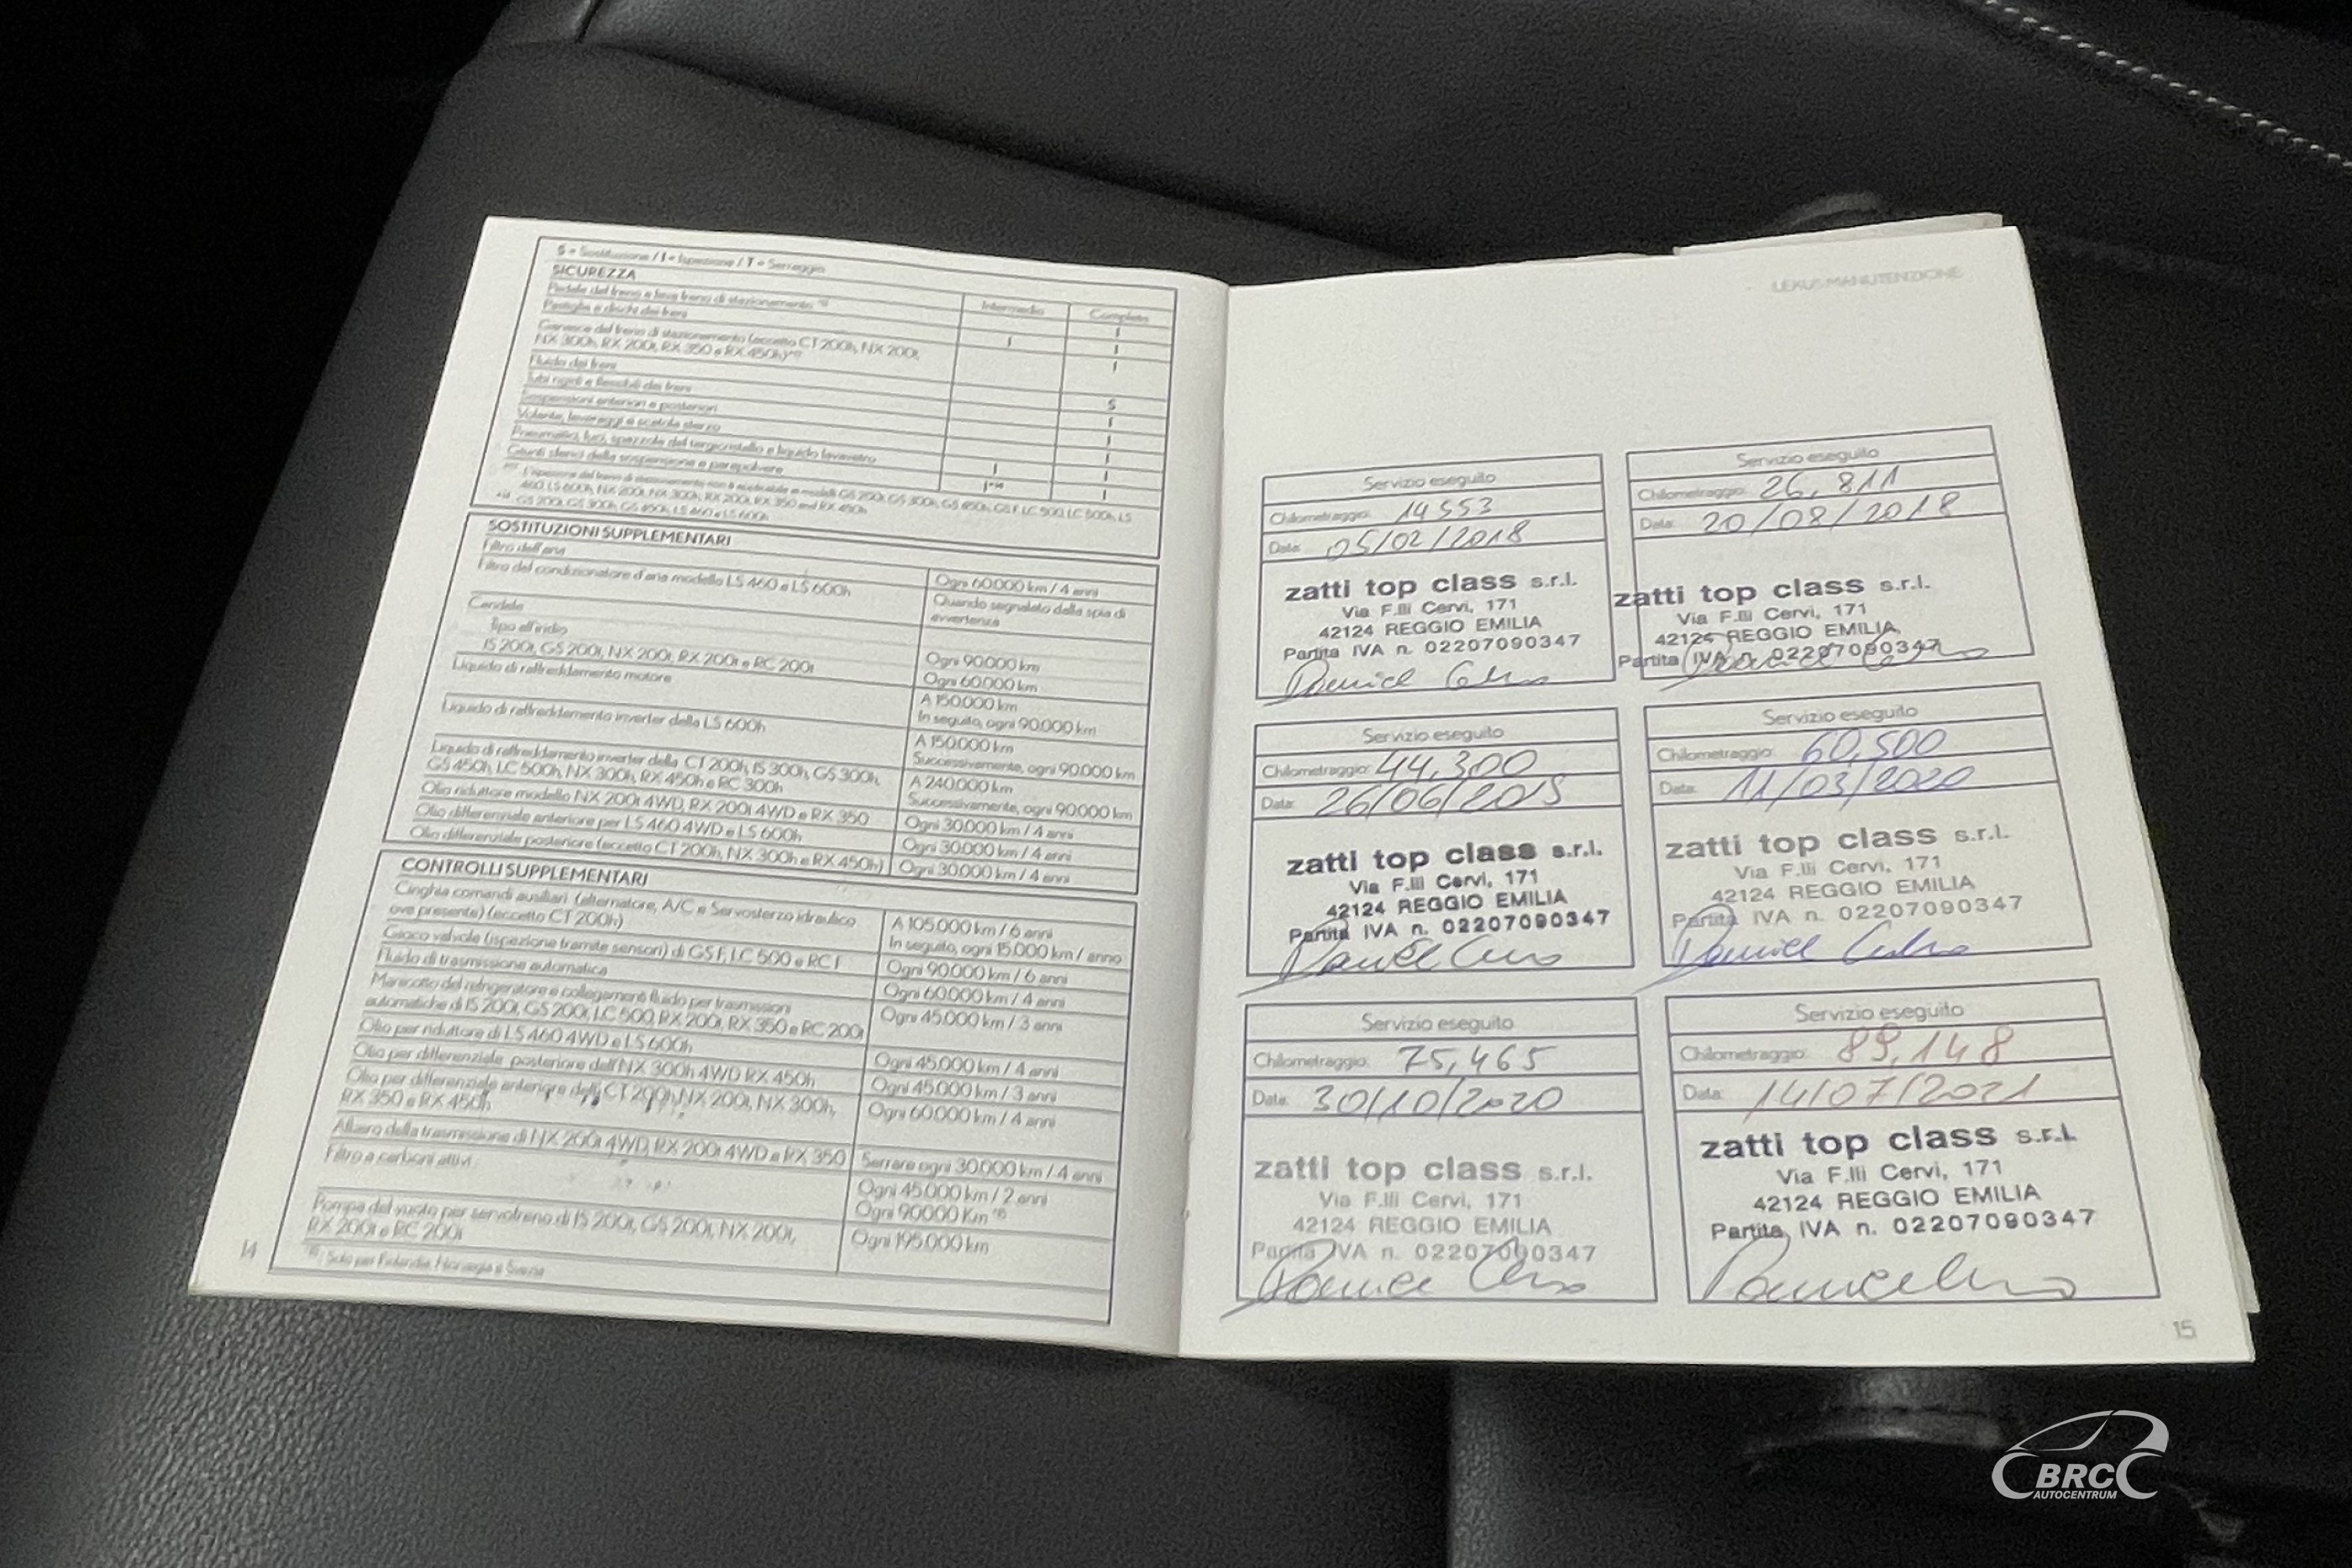 S = Sostituzione / I = Ispezione / T = Serraggio
SICUREZZA
Intermedio
Completo
Pedale del freno e leva freno di stazionamento
I
Pastiglie e dischi dei freni
I
I
Ganasce del freno di stazionamento (eccetto CT 200h, NX 200t,
NX 300h, RX 200t, RX 350 e RX 450h)
I
Fluido dei freni
S
Tubi rigidi e flessibili dei freni
I
Sospensioni anteriori e posteriori
I
Volante, leveraggi e scatola sterzo
I
Pneumatici, luci, spazzole del tergicristallo e liquido lavavetro
I
I
Giunti sferici della sospensione e parapolvere
I
SOSTITUZIONI SUPPLEMENTARI
Filtro dell'aria
Ogni 60.000 km / 4 anni
Filtro del condizionatore d'aria modello LS 460 e LS 600h
Quando segnalato dalla spia di
avvertenza
Candele
Tipo all'iridio
Ogni 90.000 km
IS 200t, GS 200t, NX 200t, RX 200t e RC 200t
Ogni 60.000 km
Liquido di raffreddamento motore
A 150.000 km
In seguito, ogni 90.000 km
Liquido di raffreddamento inverter della LS 600h
A 150.000 km
Successivamente, ogni 90.000 km
Liquido di raffreddamento inverter della CT 200h, IS 300h, GS 300h,
GS 450h, LC 500h, NX 300h, RX 450h e RC 300h
A 240.000 km
Successivamente, ogni 90.000 km
Olio riduttore modello NX 200t 4WD, RX 200t 4WD e RX 350
Ogni 30.000 km / 4 anni
Olio differenziale anteriore per LS 460 4WD e LS 600h
Ogni 30.000 km / 4 anni
Olio differenziale posteriore (eccetto CT 200h, NX 300h e RX 450h)
Ogni 30.000 km / 4 anni
CONTROLLI SUPPLEMENTARI
Cinghia comandi ausiliari (alternatore, A/C e Servosterzo idraulico
(ove presente) (eccetto CT 200h)
A 105.000 km / 6 anni
In seguito, ogni 15.000 km / anno
Gioco valvole (ispezione tramite sensori) di GS F, LC 500 e RC F
Ogni 90.000 km / 6 anni
Fluido di trasmissione automatica
Ogni 60.000 km / 4 anni
Manicotto del refrigeratore e collegamenti fluido per trasmissioni
automatiche di IS 200t, GS 200t, LC 500, RX 200t, RX 350 e RC 200t
Ogni 45.000 km / 3 anni
Olio per riduttore di LS 460 4WD e LS 600h
Ogni 45.000 km / 4 anni
Olio per differenziale posteriore dell'NX 300h 4WD RX 450h
Ogni 45.000 km / 3 anni
Olio per differenziale anteriore della CT 200h, NX 200t, NX 300h,
RX 350 e RX 450h
Ogni 60.000 km / 4 anni
Albero della trasmissione di NX 200t 4WD, RX 200t 4WD e RX 350
Serrare ogni 30.000 km / 4 anni
Filtro a carboni attivi
Ogni 45.000 km / 2 anni
Ogni 90000 Km
Pompa del vuoto per servofreno di IS 200t, GS 200t, NX 200t,
RX 200t e RC 200t
Ogni 195.000 km
Solo per Finlandia, Norvegia e Svezia
14
LEXUS MANUTENZIONE
Servizio eseguito
Chilometraggio: 14553
Data: 05/02/2018
zatti top class s.r.l.
Via F.lli Cervi, 171
42124 REGGIO EMILIA
Partita IVA n. 02207090347
Servizio eseguito
Chilometraggio: 26,811
Data: 20/08/2018
zatti top class s.r.l.
Via F.lli Cervi, 171
42124 REGGIO EMILIA
Partita IVA n. 02207090347
Servizio eseguito
Chilometraggio: 44,300
Data: 26/06/2019
zatti top class s.r.l.
Via F.lli Cervi, 171
42124 REGGIO EMILIA
Partita IVA n. 02207090347
Servizio eseguito
Chilometraggio: 60,500
Data: 11/03/2020
zatti top class s.r.l.
Via F.lli Cervi, 171
42124 REGGIO EMILIA
Partita IVA n. 02207090347
Servizio eseguito
Chilometraggio: 75,465
Data: 30/10/2020
zatti top class s.r.l.
Via F.lli Cervi, 171
42124 REGGIO EMILIA
Partita IVA n. 02207090347
Servizio eseguito
Chilometraggio: 89,148
Data: 14/07/2021
zatti top class s.r.l.
Via F.lli Cervi, 171
42124 REGGIO EMILIA
Partita IVA n. 02207090347
15
BRC
AUTOCENTRUM